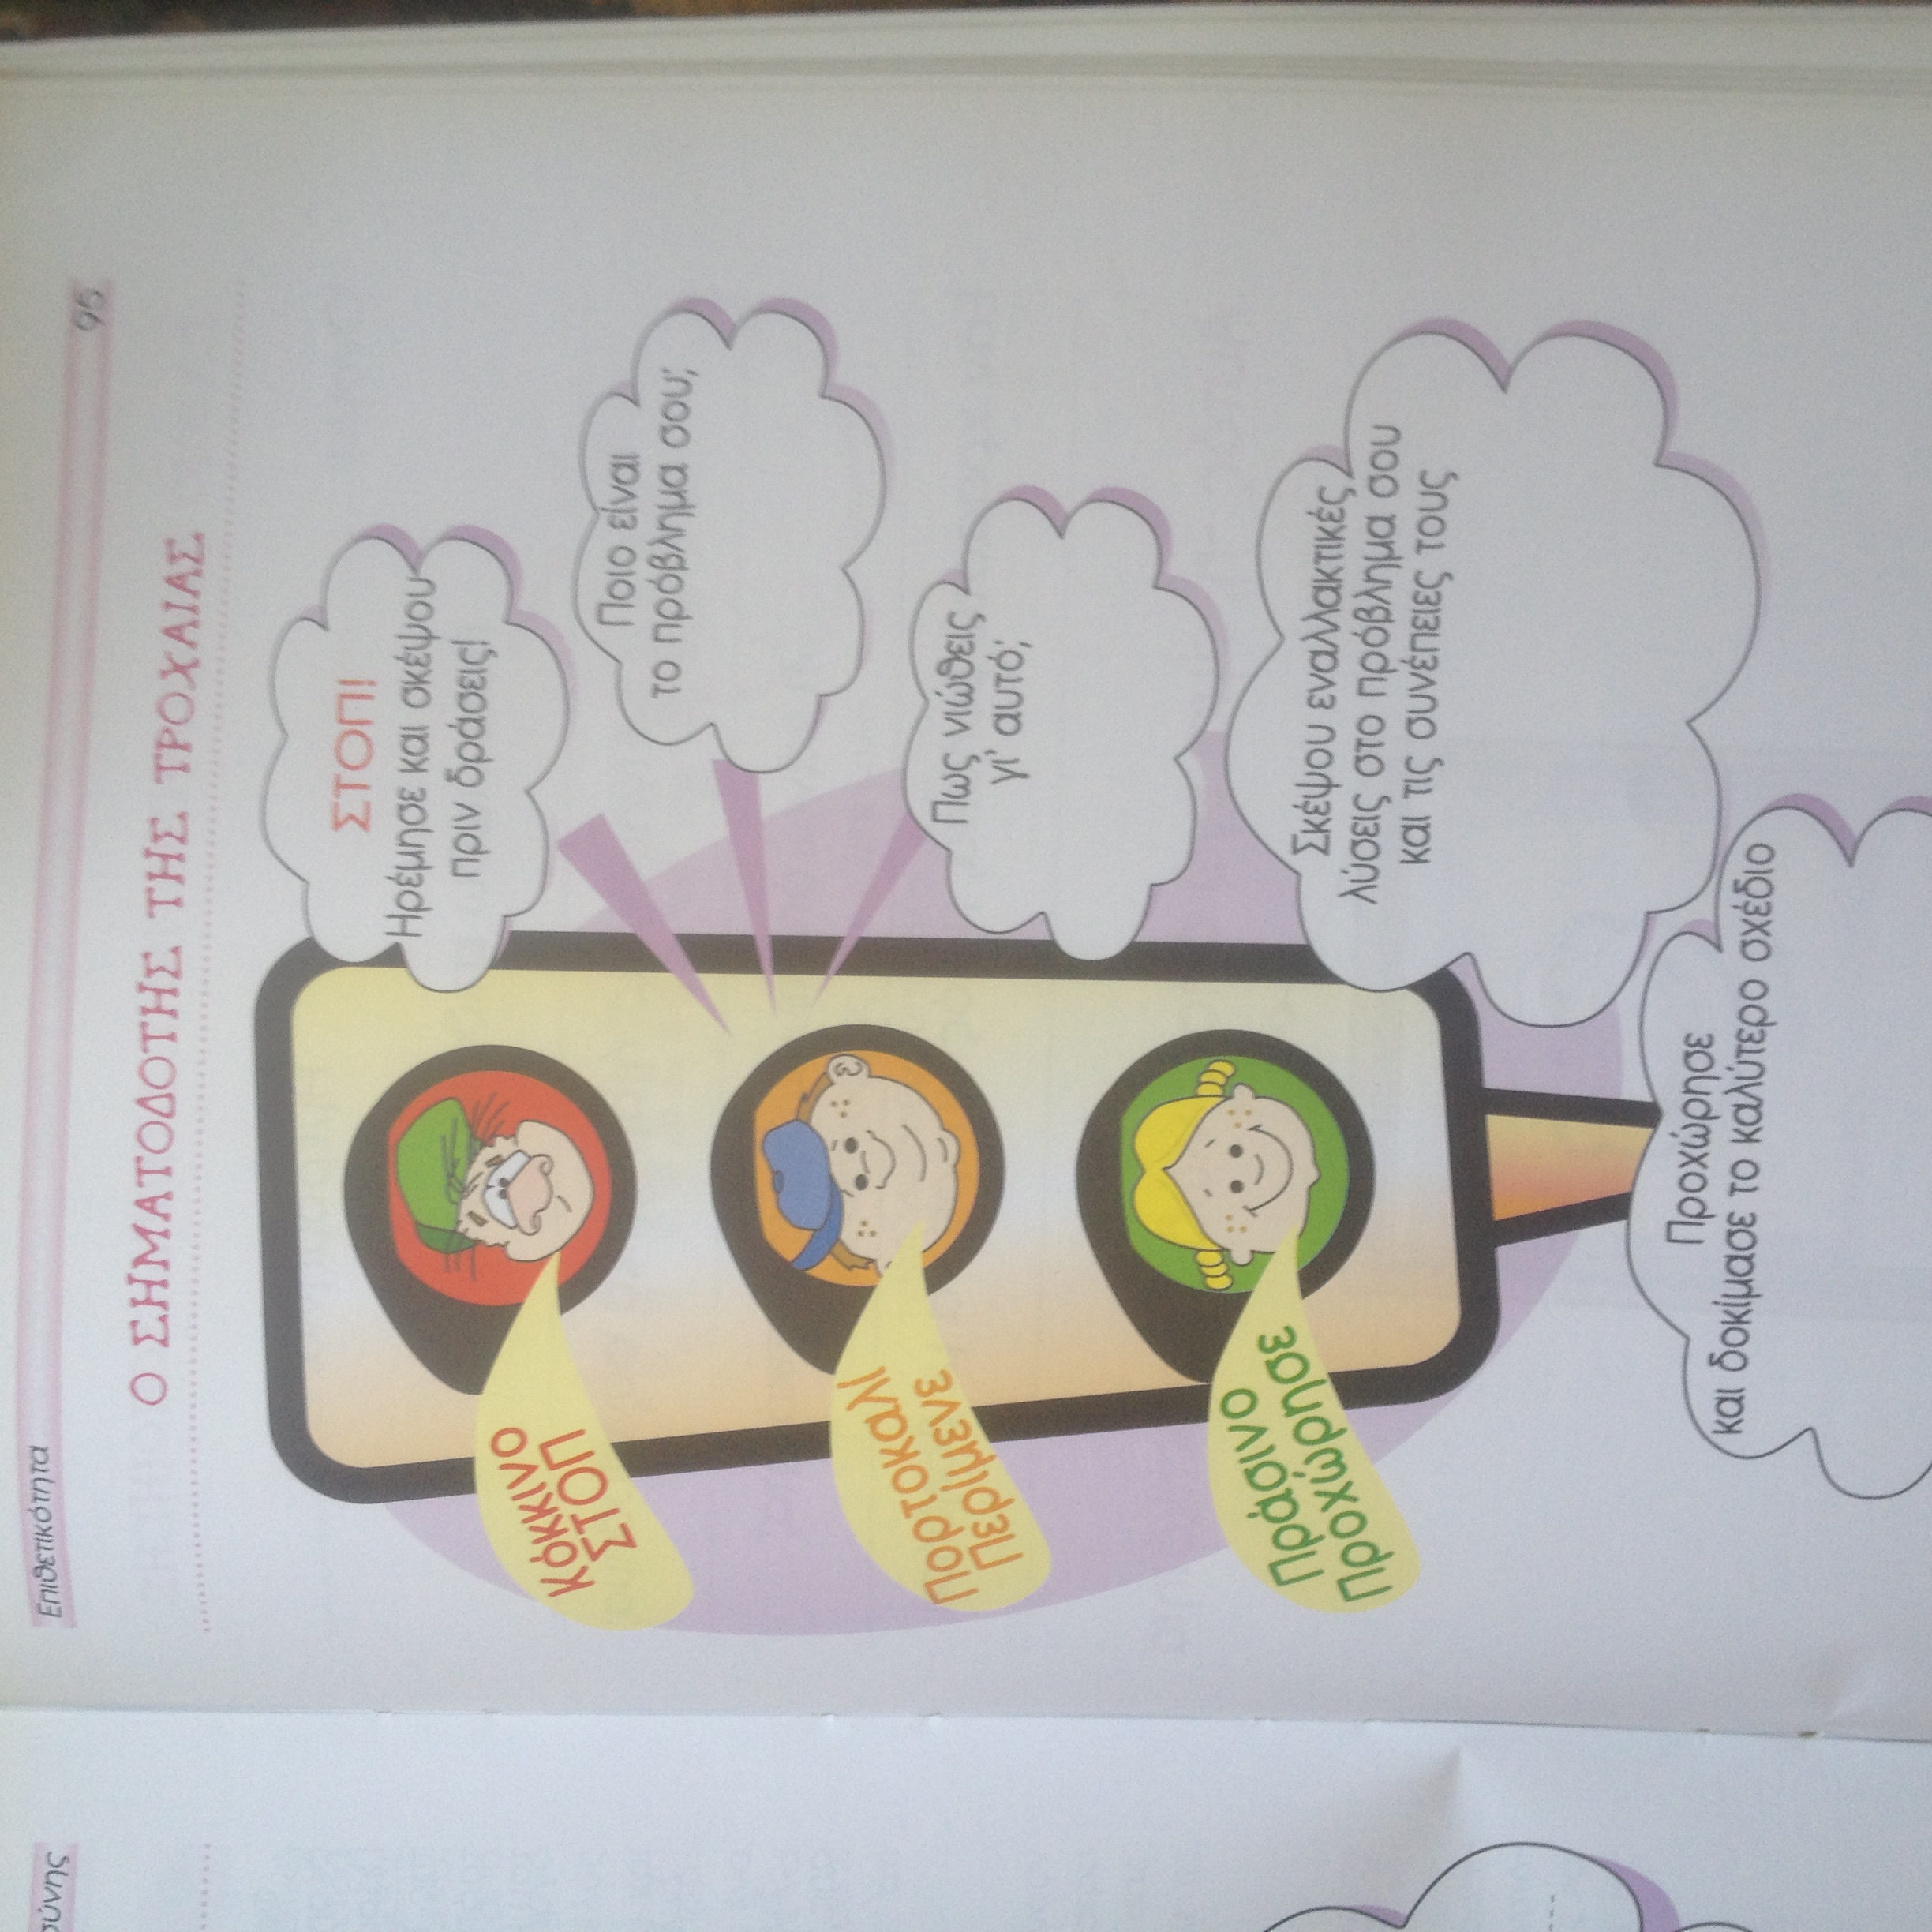 Επιθετικότητα
95
Ο ΣΗΜΑΤΟΔΟΤΗΣ ΤΗΣ ΤΡΟΧΑΙΑΣ
ΣΤΟΠ!
Ηρέμησε και σκέψου
πριν δράσεις!
Κόκκινο
ΣΤΟΠ
Ποιο είναι
το πρόβλημα σου;
Πως νιώθεις
γι' αυτό;
Πορτοκαλί
Περίμενε
Σκέψου εναλλακτικές
λύσεις στο πρόβλημα σου
και τις συνέπειες τους
Πράσινο
Προχώρησε
Προχώρησε
και δοκίμασε το καλύτερο σχέδιο